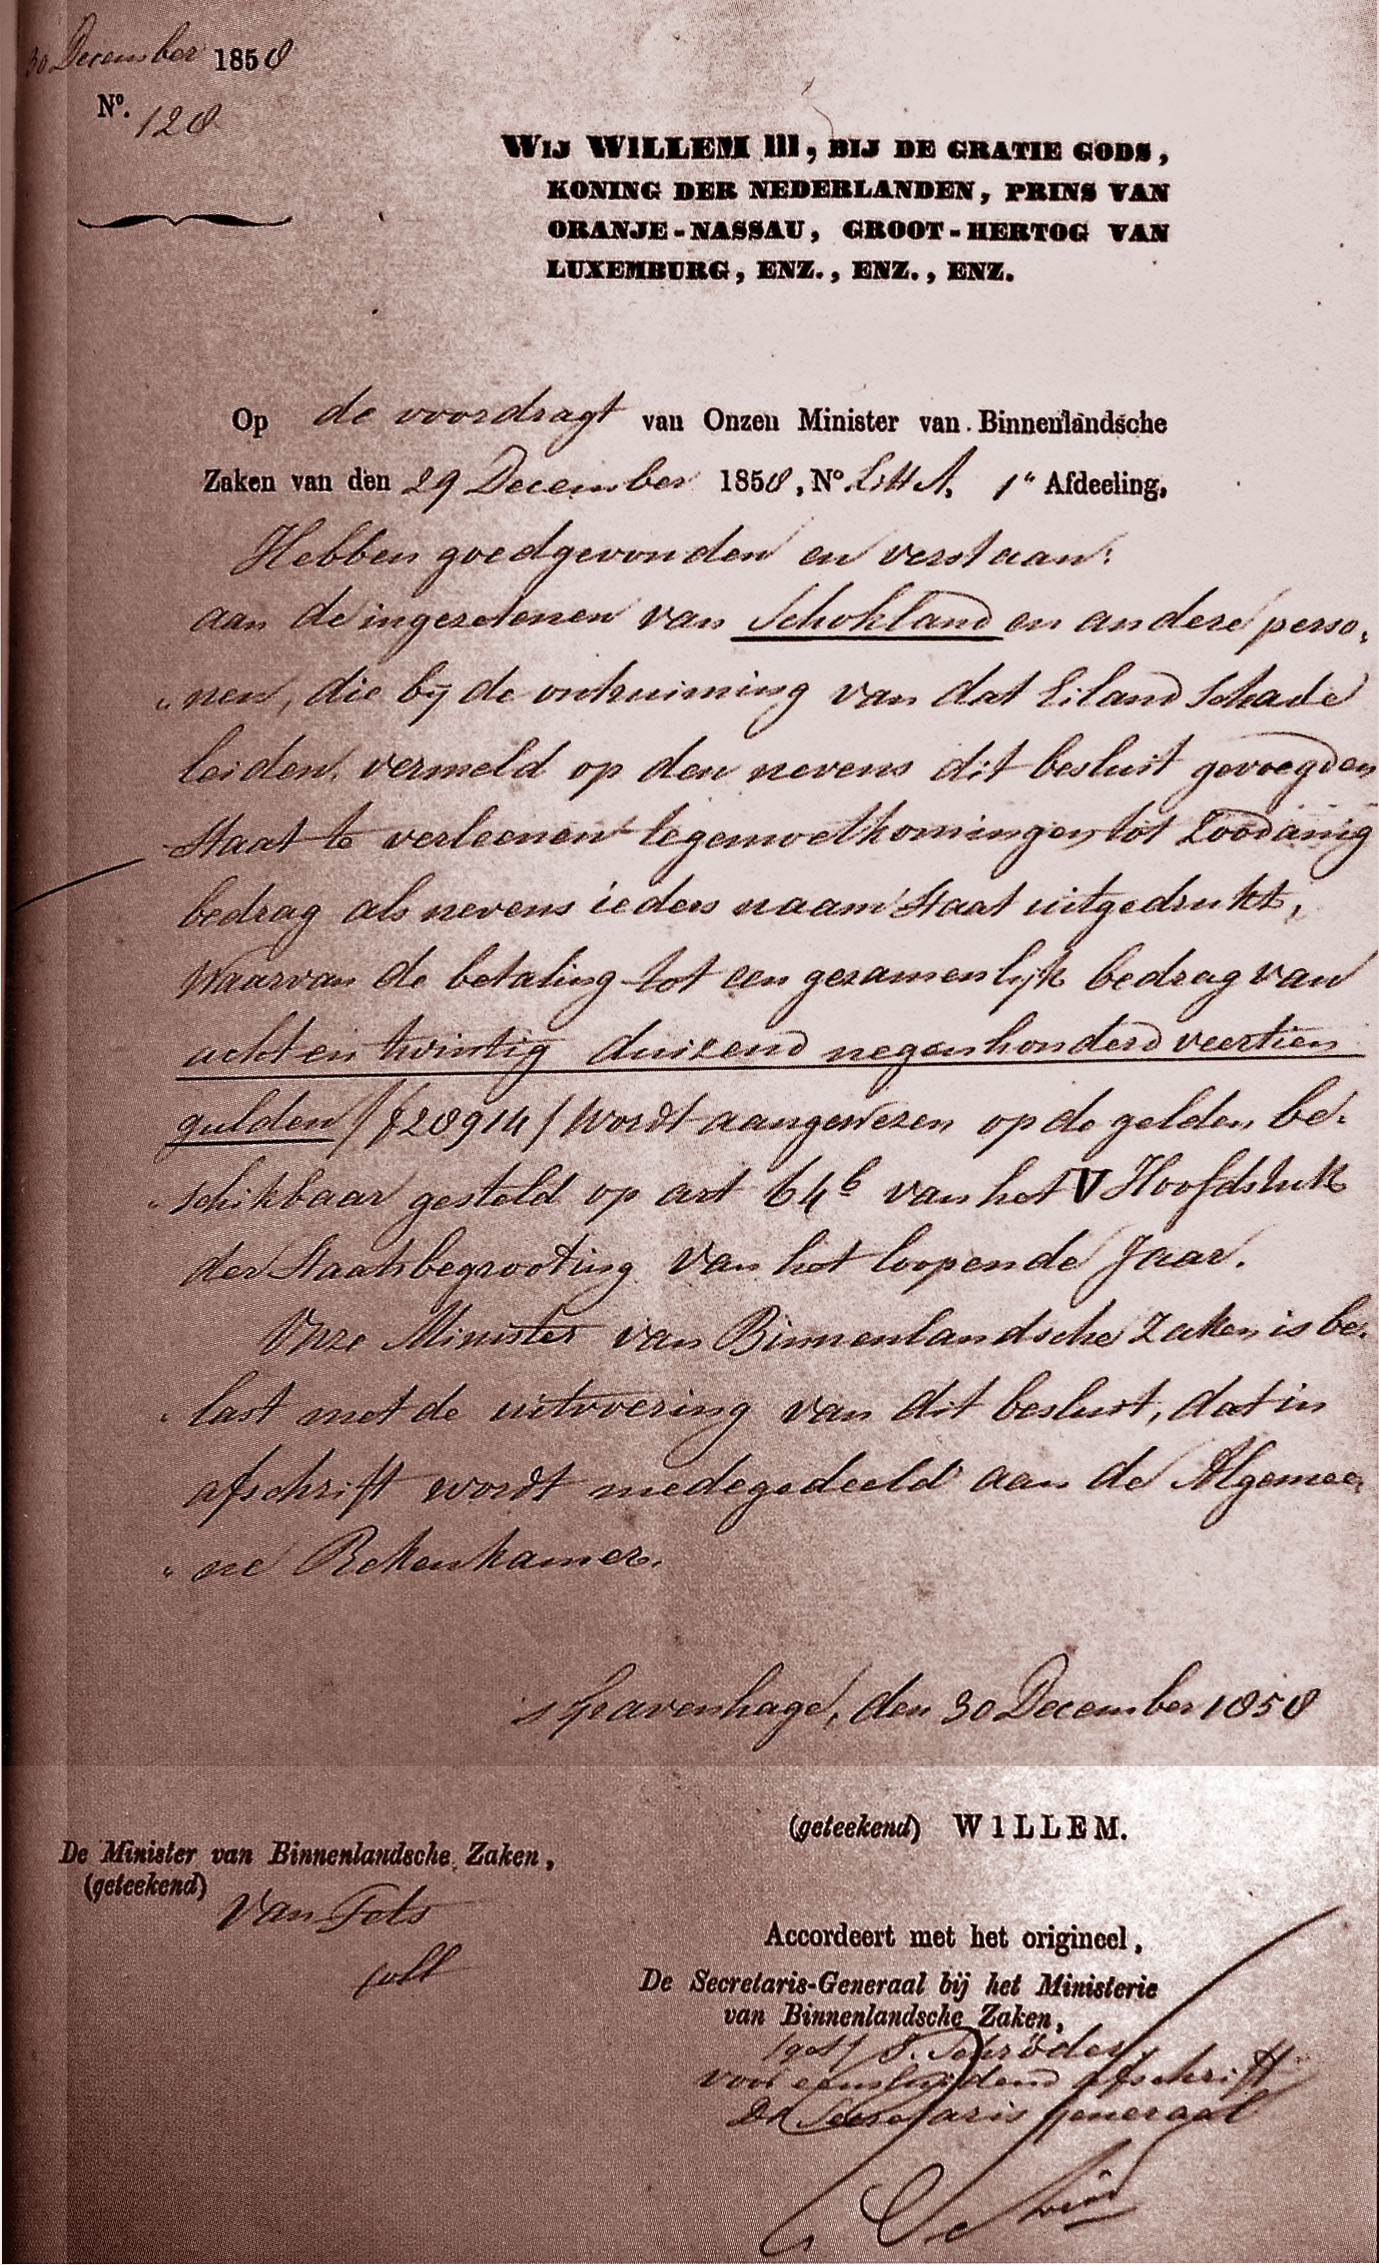 30 December 1858
No. 128
WIJ WILLEM III, BIJ DE GRATIE GODS,
KONING DER NEDERLANDEN, PRINS VAN
ORANJE-NASSAU, GROOT-HERTOG VAN
LUXEMBURG, ENZ., ENZ., ENZ.
Op de voordragt van Onzen Minister van Binnenlandsche
Zaken van den 29 December 1858, No Litt A, 1e Afdeeling,
Hebben goedgevonden en verstaan:
aan de ingezetenen van Schokland en andere perso„
„nen, die bij de ontruiming van dat Eiland schade
leiden, vermeld op den nevens dit besluit gevoegden
Staat te verleenen tegemoetkomingen tot zoodanig
bedrag als nevens ieders naam staat uitgedrukt,
Waarvan de betaling tot een gezamenlijk bedrag van
acht en twintig duizend negenhonderd veertien
gulden /f28914/ wordt aangewezen op de gelden be„
„schikbaar gesteld op art 64b van het V Hoofdstuk
der Staatsbegrooting van het loopende Jaar.
Onze Minister van Binnenlandsche Zaken is be„
„last met de uitvoering van dit besluit, dat in
afschrift wordt medegedeeld aan de Algemee„
„ne Rekenkamer.
s Gravenhage, den 30 December 1858
(geteekend) WILLEM.
De Minister van Binnenlandsche Zaken,
(geteekend)
Van Tets
coll
Accordeert met het origineel,
De Secretaris-Generaal bij het Ministerie
van Binnenlandsche Zaken,
/get/ Schröder
voor eensluidend afschrift
De Secretaris Generaal